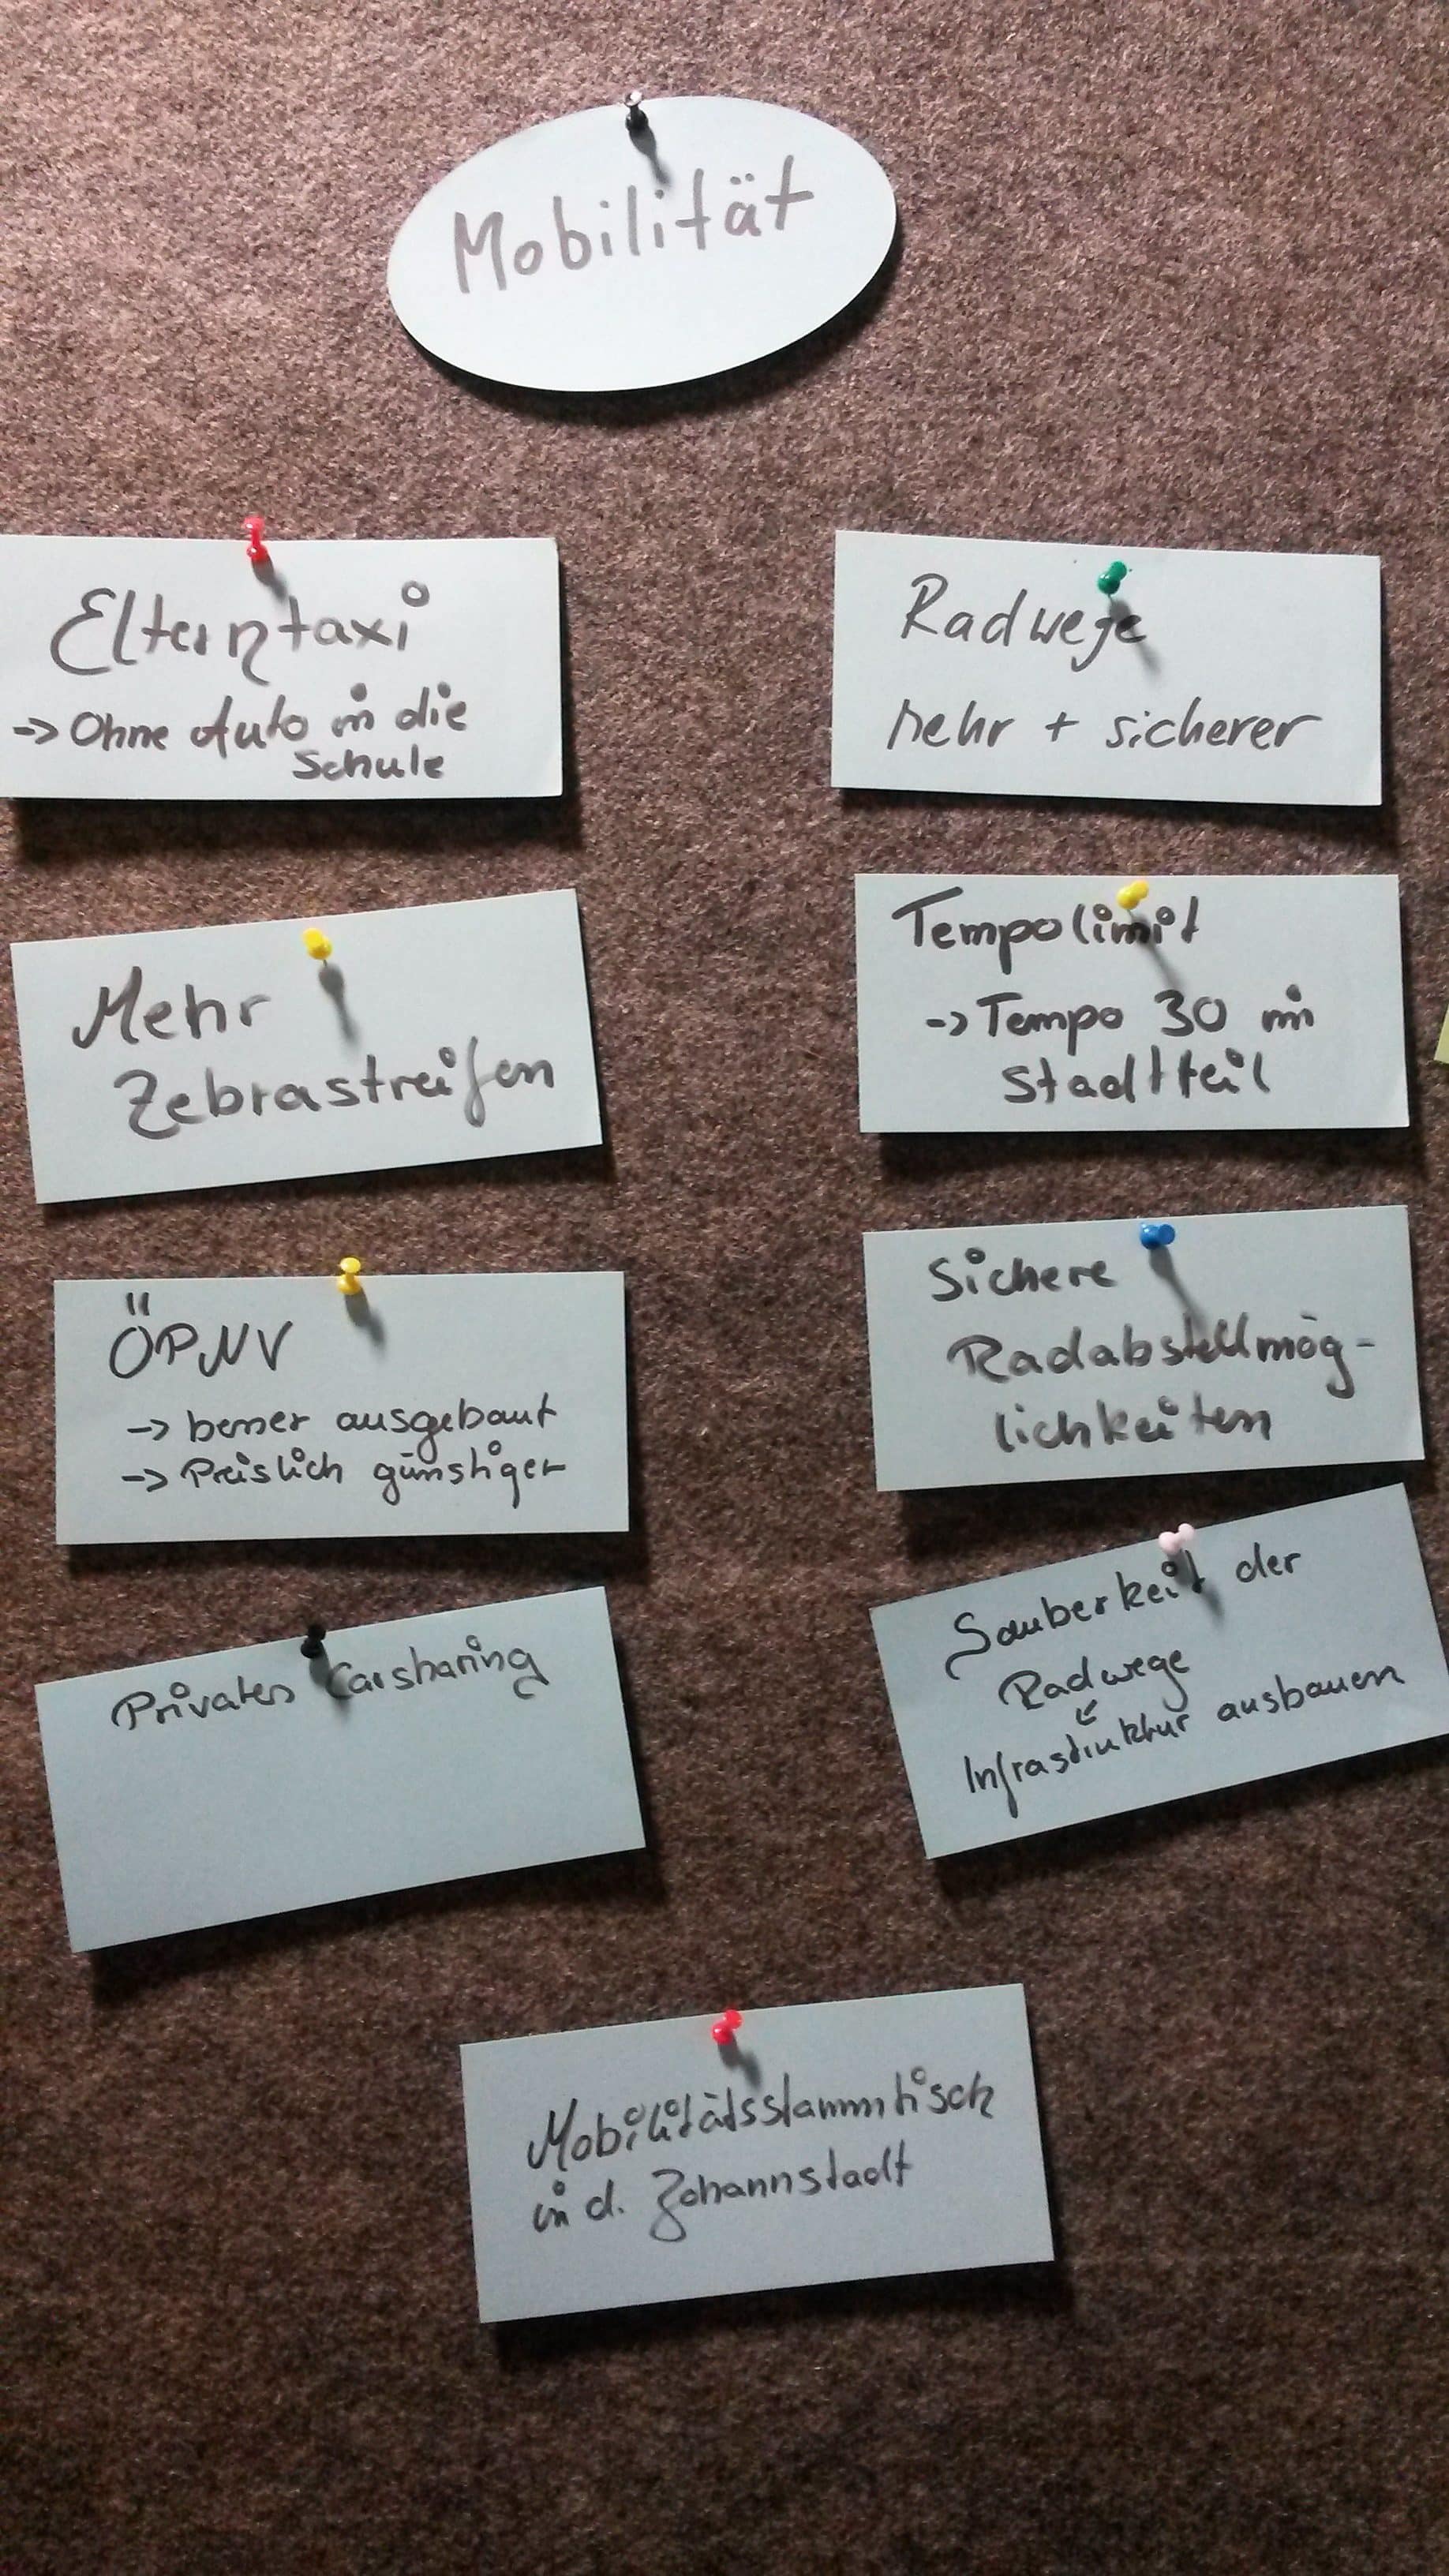 Mobilität
Elterntaxi
-> Ohne Auto in die
Schule
Mehr
Zebrastreifen
ÖPNV
-> besser ausgebaut
-> Preislich günstiger
Privates Carsharing
Radwege
mehr + sicherer
Tempolimit
-> Tempo 30 im
Stadtteil
Sichere
Radabstellmög-
lichkeiten
Sauberkeit der
Radwege
↙
Infrastruktur ausbauen
Mobilitätsstammtisch
in d. Johannstadt